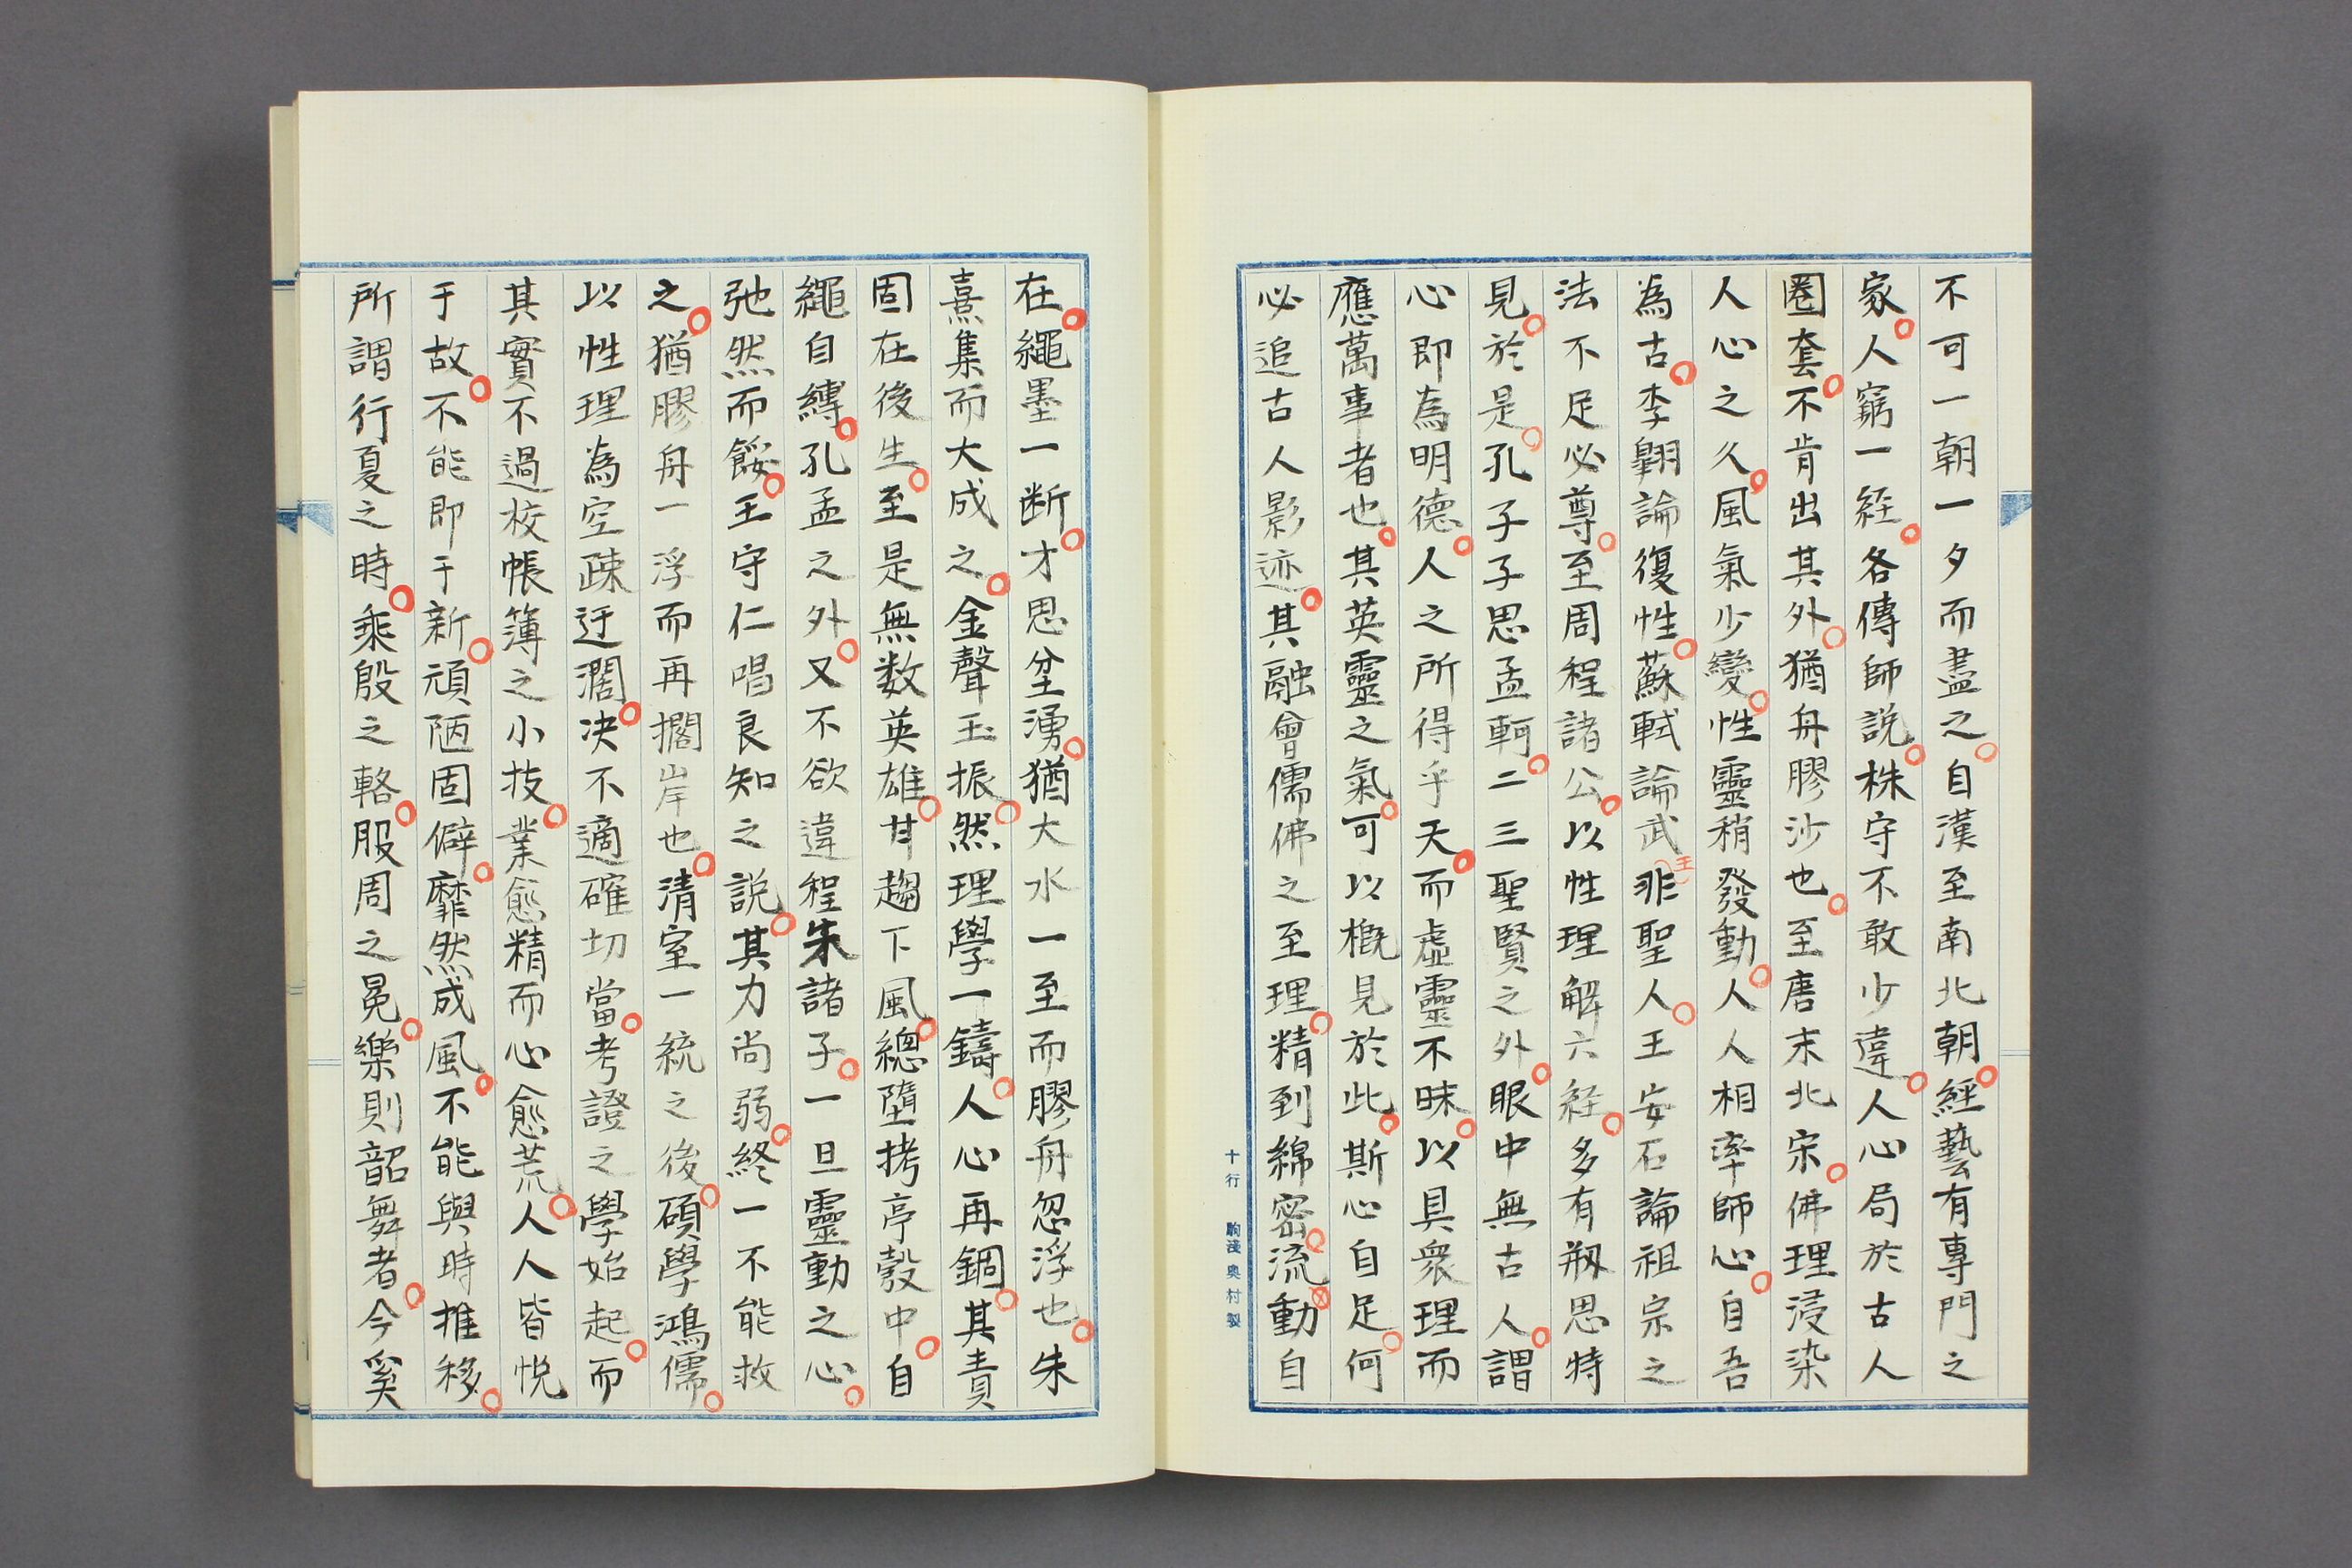 不可一朝一夕而盡之。自漢至南北朝。經藝有專門之
家。人窮一経。各傳師説。株守不敢少違。人心局於古人
圏套。不肯出其外。猶舟膠沙也。至唐末北宋。佛理浸染
人心之久。風氣少變。性靈稍發動。人人相率師心。自吾
為古。李翺論復性。蘇軾論武王非聖人。王安石論祖宗之
法不足必尊。至周程諸公。以性理解六経。多有剏思特
見。於是。孔子子思孟軻。二三聖賢之外。眼中無古人。謂
心即為明德。人之所得乎天。而虛靈不昧。以具衆理而
應萬事者也。其英靈之氣。可以概見於此。斯心自足。何
必追古人影迹。其融會儒佛之至理。精到綿密。流動自
十行 駒淺奥村製
在。繩墨一断。才思坌湧。猶大水一至而膠舟忽浮也。朱
熹集而大成之。金聲玉振。然理學一鑄。人心再錮。其責
固在後生。至是無数英雄。甘趨下風。總墮拷亭彀中。自
繩自縛。孔孟之外。又不欲違程朱諸子。一旦靈動之心。
弛然而餒。王守仁唱良知之説。其力尚弱。終一不能救
之。猶膠舟一浮而再擱岸也。清室一統之後。碩學鴻儒。
以性理為空疎迂濶。決不適確切當。考證之學始起。而
其實不過校帳簿之小技。業愈精而心愈荒。人人皆悅
于故。不能即于新。頑陋固僻。靡然成風。不能與時推移。
所謂行夏之時。乘殷之輅。服周之冕。樂則韶舞者。今奚